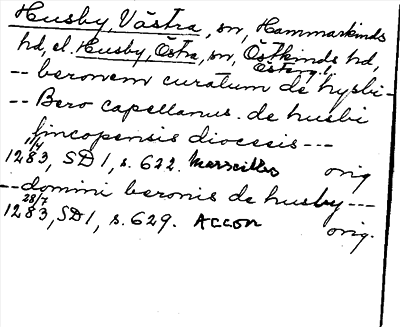 Husby, Västra, sn, Hammarkinds
hd, el. Husby, Östra, sn, Östkinds hd,
Österg.l.
-- beronem curatum de hysbi -
-- Bero capellanus de husbi
lincopensis diocesis ---
11/4
1283, SD1, s. 622. Marseilles orig
-- domini beronis de husby ---
28/7
1283, SD1, s. 629. Accon orig.